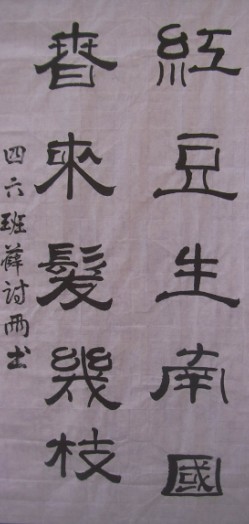 紅豆生南國
春來髮幾枝
四六班薛討兩书